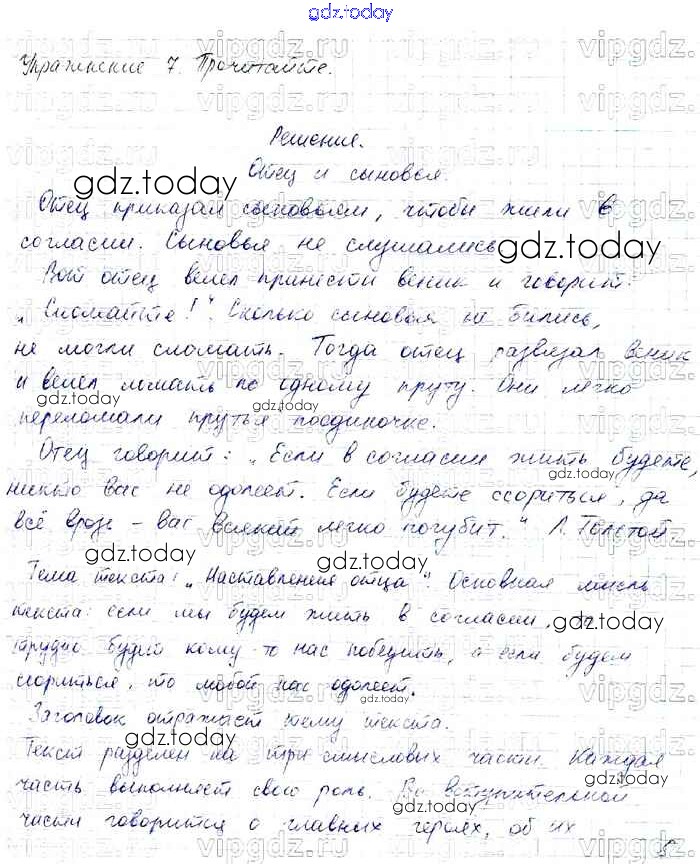 gdz.today
Упражнение 7. Прочитайте.
Решение.
Отец и сыновья.
Отец приказал сыновьям, чтобы жили в
согласии. Сыновья не слушались
Вот отец велел принести веник и говорит:
„Сломайте!". Сколько сыновья не бились,
не могли сломать. Тогда отец развязал веник
и велел ломать по одному пруту. Они легко
переломали прутья поодиночке.
Отец говорит: „Если в согласии жить будете,
никто вас не одолеет. Если будете ссориться, да
всё врозь – вас всякий легко погубит." Л. Толстой.
Тема текста: „Наставления отца". Основная мысль
текста: если мы будем жить в согласии, то
трудно будет кому-то нас победить, а если будем
ссориться, то любой нас одолеет.
Заголовок отражает тему текста.
Текст разделен на три смысловых части. Каждая
часть выполняет свою роль. Во вступительной
части говорится о главных героях, об их